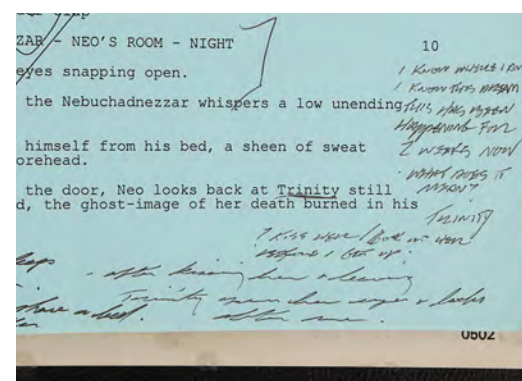 ZAR - NEO'S ROOM - NIGHT 10
eyes snapping open.
the Nebuchadnezzar whispers a low unending
himself from his bed, a sheen of sweat
orehead.
the door, Neo looks back at Trinity still
d, the ghost-image of her death burned in his
I KNOW WHERE I AM
I KNOW THIS DREAM
THIS HAS BEEN
HAPPENING FOR
2 WEEKS NOW
WHAT DOES IT
MEAN?
TRINITY
? KISS HER / LOOK AT HER
BEFORE I GET UP.
- after kissing her & leaving
Trinity opens her eyes & looks
after me.
share a bed.
0502